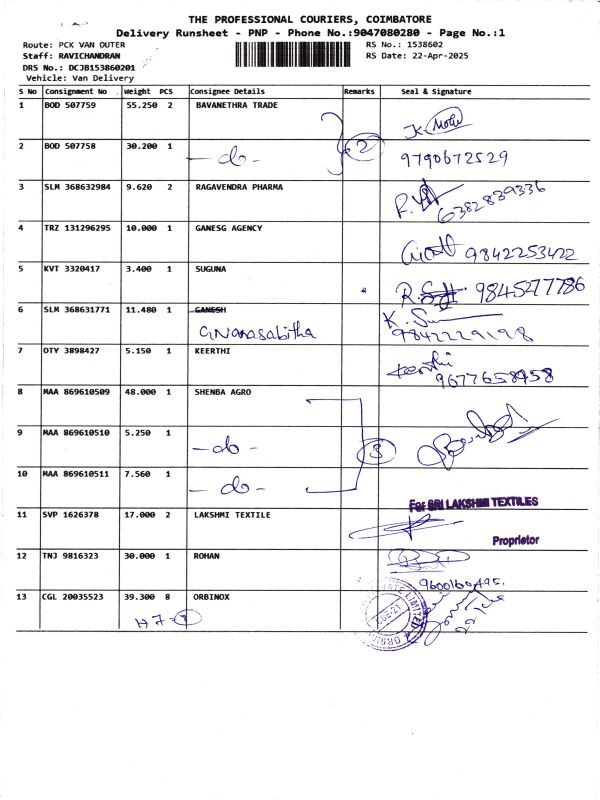 THE PROFESSIONAL COURIERS, COIMBATORE
Delivery Runsheet - PNP - Phone No.:9047080280 - Page No.:1
Route: PCK VAN OUTER RS No.: 1538602
Staff: RAVICHANDRAN RS Date: 22-Apr-2025
DRS No.: DCJB153860201
Vehicle: Van Delivery
S No Consignment No Weight PCS Consignee Details Remarks Seal & Signature
1 BOD 507759 55.250 2 BAVANETHRA TRADE
2 BOD 507758 30.200 1 -do- 2 9790672529
3 SLM 368632984 9.620 2 RAGAVENDRA PHARMA 6382839336
4 TRZ 131296295 10.000 1 GANESG AGENCY 9842253422
5 KVT 3320417 3.400 1 SUGUNA 9845277786
6 SLM 368631771 11.480 1 GANESH
Gnanasabitha 9842229198
7 OTY 3898427 5.150 1 KEERTHI Keerthi
9677658958
8 MAA 869610509 48.000 1 SHENBA AGRO
9 MAA 869610510 5.250 1 -do- 3
10 MAA 869610511 7.560 1 -do-
For SRI LAKSHMI TEXTILES
11 SVP 1626378 17.000 2 LAKSHMI TEXTILE
Proprietor
12 TNJ 9816323 30.000 1 ROHAN
9600160495.
13 CGL 20035523 39.300 8 ORBINOX